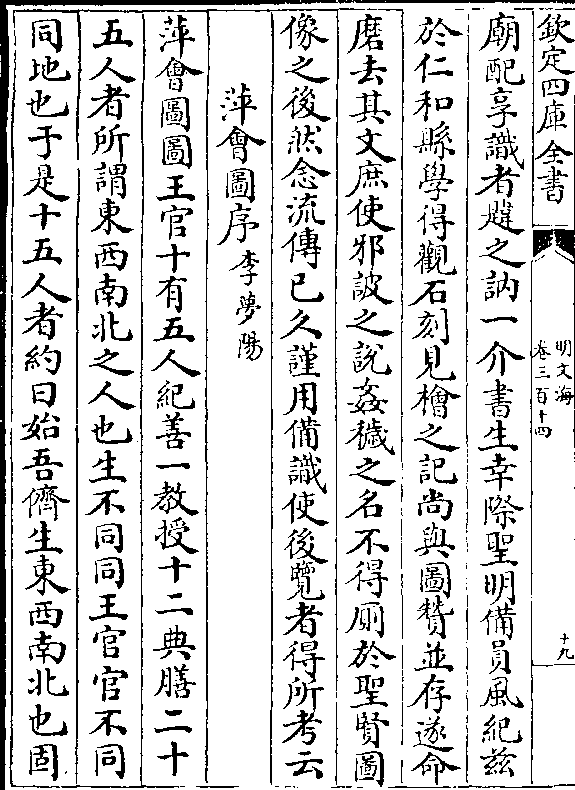 欽定四庫全書
明文海
卷三百十四
十九
廟配享識者韙之訥一介書生幸際聖明備員風紀兹
於仁和縣學得觀石刻見檜之記尚與圖贊並存遂命
磨去其文庶使邪詖之說姦穢之名不得厠於聖賢圖
像之後然念流傳已久謹用備識使後覽者得所考云
萍會圖序李夢陽
萍會圖圖王官十有五人紀善一教授十二典膳二十
五人者所謂東西南北之人也生不同同王官官不同
同地也于是十五人者約曰始吾儕生東西南北也固